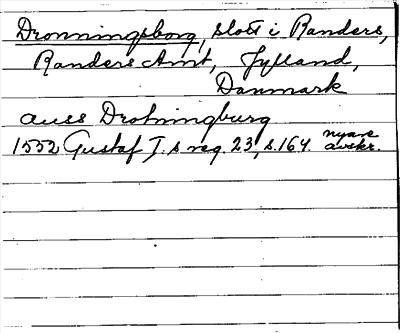 Dronningsborg, slott i Randers,
Randers Amt, Jylland,
Danmark
auss Drotningburg
1552 Gustaf I.s reg. 23, s. 164. nyare avskr.